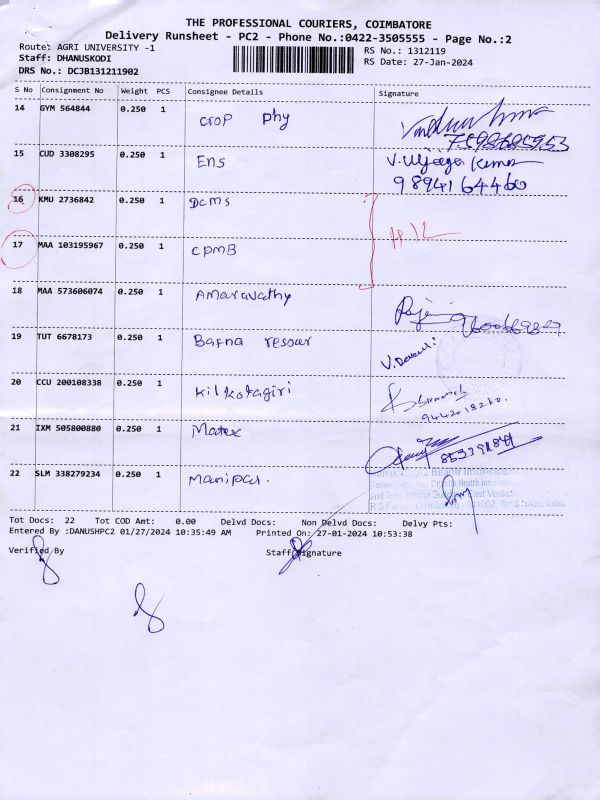 THE PROFESSIONAL COURIERS, COIMBATORE
Delivery Runsheet - PC2 - Phone No.:0422-3505555 - Page No.:2
Route: AGRI UNIVERSITY -1 RS No.: 1312119
Staff: DHANUSKODI RS Date: 27-Jan-2024
DRS No.: DCJB131211902
S No Consignment No Weight PCS Consignee Details Signature
14 GYM 564844 0.250 1 Crop Phy
15 CUD 3308295 0.250 1 Ens
9894164460
16 KMU 2736842 0.250 1 Dcms
17 MAA 103195967 0.250 1 CPMB
18 MAA 573606074 0.250 1 Amaravathy
19 TUT 6678173 0.250 1 Bafna resour
20 CCU 200108338 0.250 1 Kilkotagiri
9442018260.
21 IXM 505800880 0.250 1 Matex
22 SLM 338279234 0.250 1 Manipal.
Tot Docs: 22 Tot COD Amt: 0.00 Delvd Docs: Non Delvd Docs: Delvy Pts:
Entered By :DANUSHPC2 01/27/2024 10:35:49 AM Printed On: 27-01-2024 10:53:38
Verified By Staff Signature